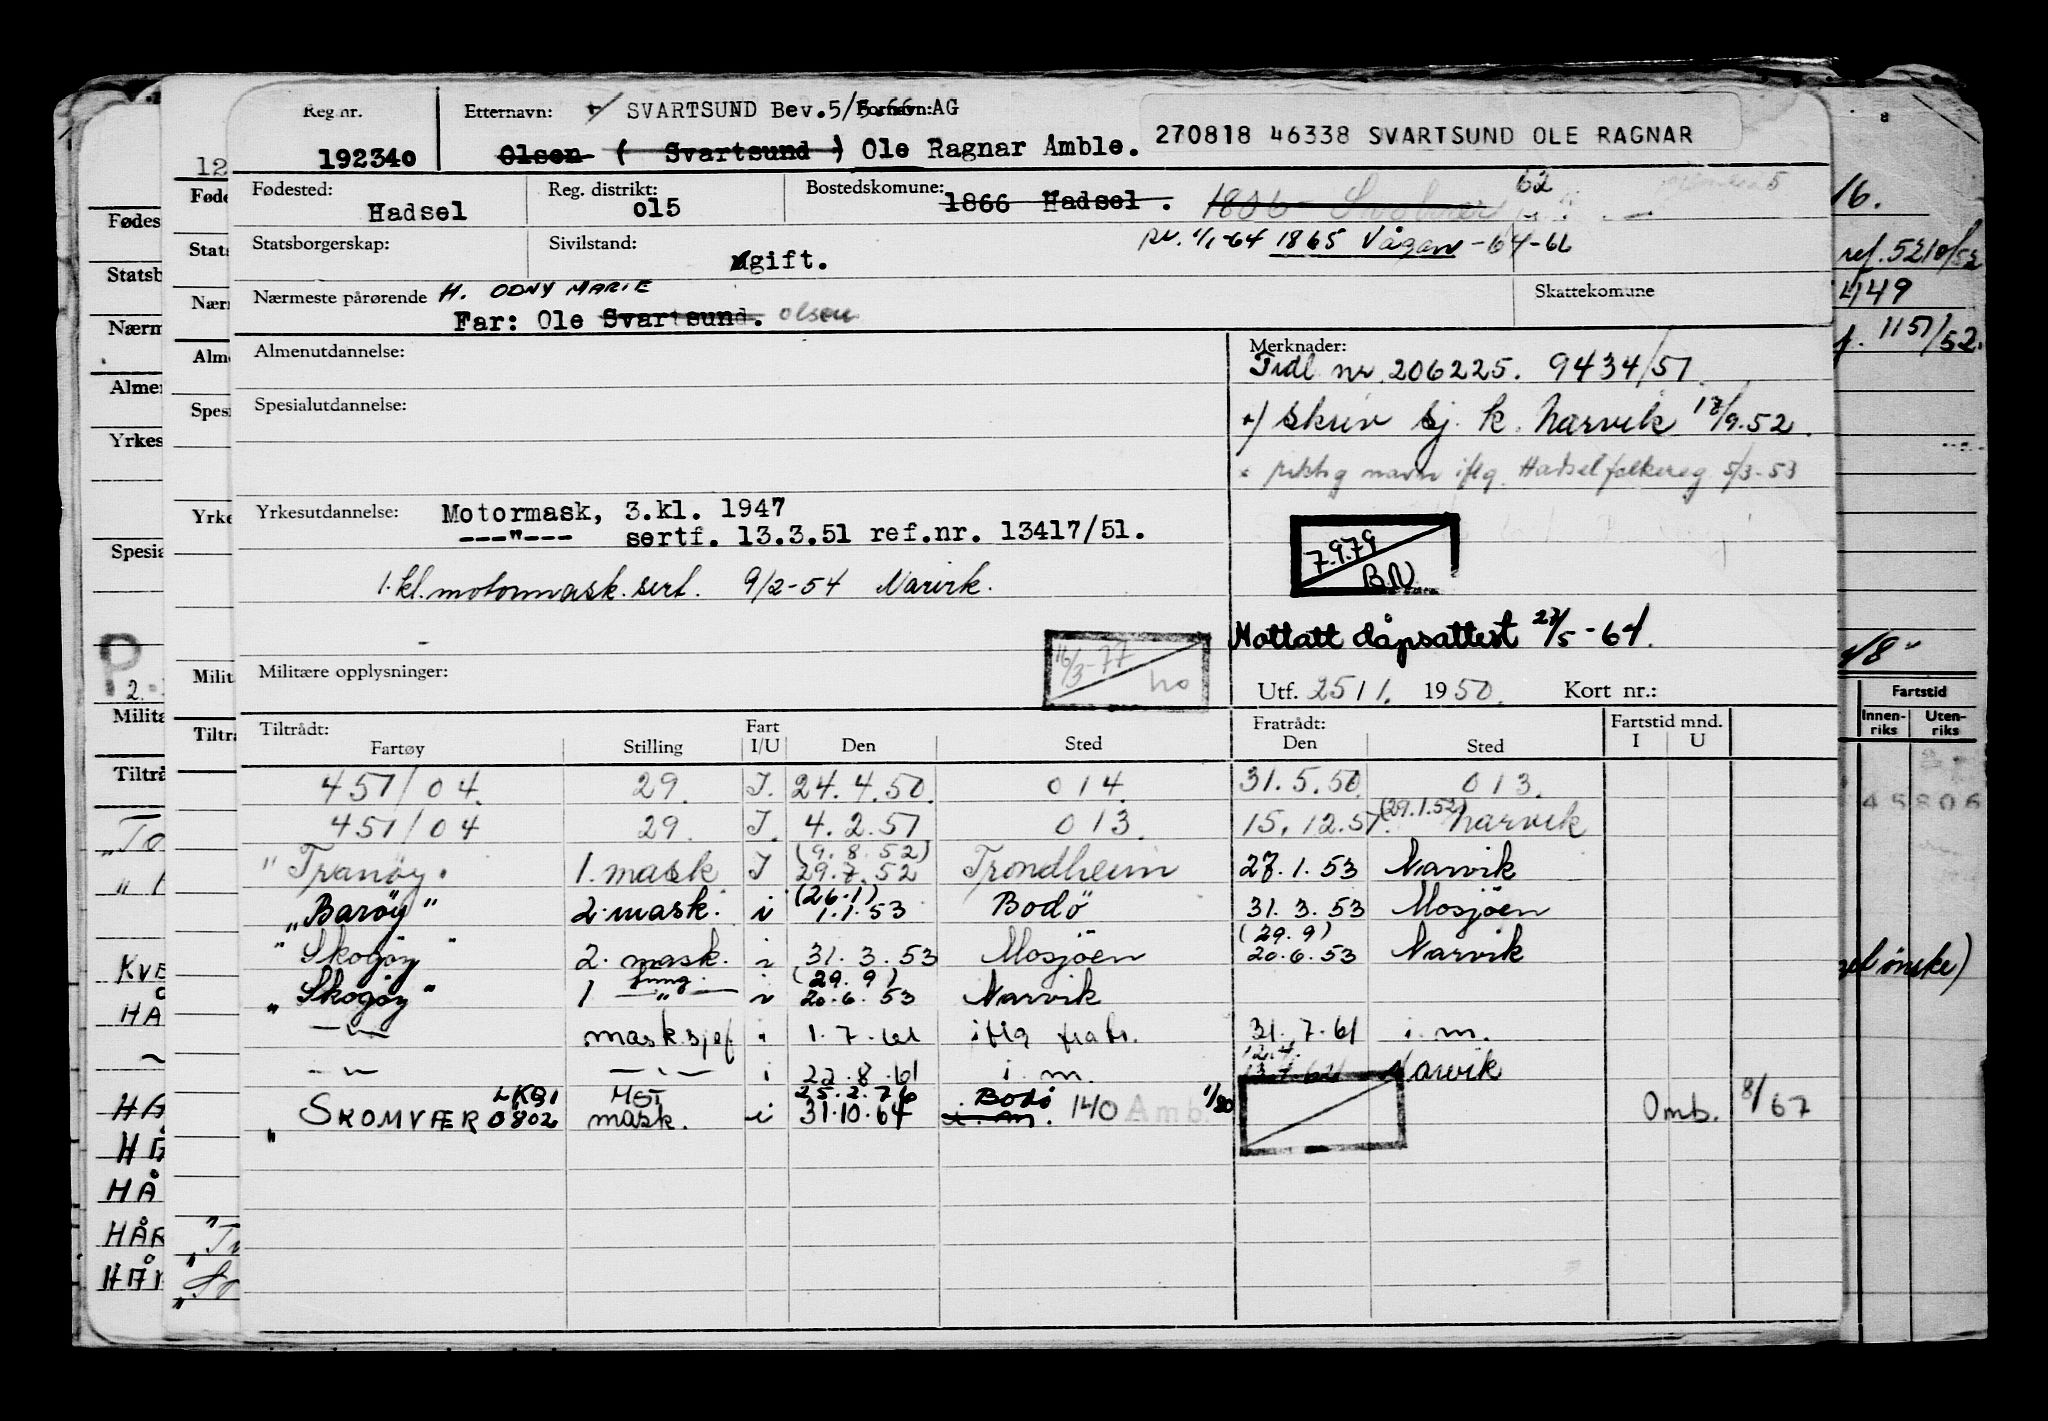 Reg nr. Etternavn: SVARTSUND Bev.5/ Fornavn: AG
192340 Olsen ( Svartsund ) Ole Ragnar Åmble. 270818 46338 SVARTSUND OLE RAGNAR
Fødested: Reg. distrikt: Bostedskomune: 62
Hadsel 015 1866 Hadsel . 1866
Statsborgerskap: Sivilstand: 1/1-64 1865 Vågan -64-66
gift.
Nærmeste pårørende H. ODNY MARIE Skattekomune
Far: Ole Svartsund. Olsen
Almenutdannelse: Merknader:
Tidl nr. 206225. 9434/51.
Spesialutdannelse:
+/ skriv sj. k. Narvik 17/9.52.
riktig navn iflg. Hadsel folkereg 5/3-53
Yrkesutdannelse: Motormask, 3.kl. 1947
---"--- sertf. 13.3.51 ref.nr. 13417/51.
7.9.79 B.N.
1.kl. motormask. sert. 9/2-54 Narvik.
Mottatt dåpsattest 27/5-64.
16/3-77 ho
Militære opplysninger: Utf. 25/1. 1950. Kort nr.:
Tiltrådt: Fart Fratrådt: Fartstid mnd.
Fartøy Stilling I/U Den Sted Den Sted I U
451/04. 29. I. 24.4.50. 014. 31.5.50. 013.
451/04 29. I. 4.2.51 013. 15.12.51. (29.1.52) Narvik
"Tranøy. 1. mask I (9.8.52) 29.7.52 Trondheim 27.1.53 Narvik
"Barøy" 2. mask. i (26.1) 1.1.53 Bodö 31.3.53 Mosjöen
"Skogøy" 2. mask. i 31.3.53 Mosjöen (29.9) 20.6.53 Narvik
"Skogøy" 1 fung. —"— i (29.9) 20.6.53 Narvik
—"— mask.sjef i 1.7.61 iflg fratr. 31.7.61 i.m.
—"— —"— i 22.8.61 i.m. 12.4. Narvik
"SKOMVÆR LKBI 0802 MST mask. i 25.2.76 31.10.64 Bodø i.m. 140 Amb. 1/80 Omb. 8/67
16.
ref. 5210/52
449
1151/52.
Fartstid
Innenriks Utenriks
45806
ønske)